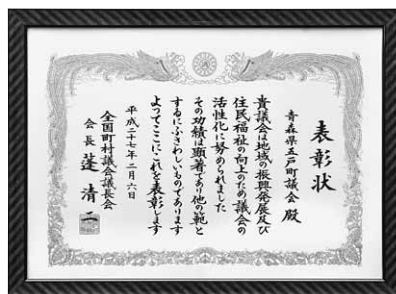 表彰状
青森県五戸町議会殿
貴議会は地域の振興発展及び
住民福祉の向上のため議会の
活性化に努められました
その功績は顕著であり他の範と
するにふさわしいものであります
よってここにこれを表彰します
平成二十七年二月六日
全国町村議会議長会
会長 蓬 清二